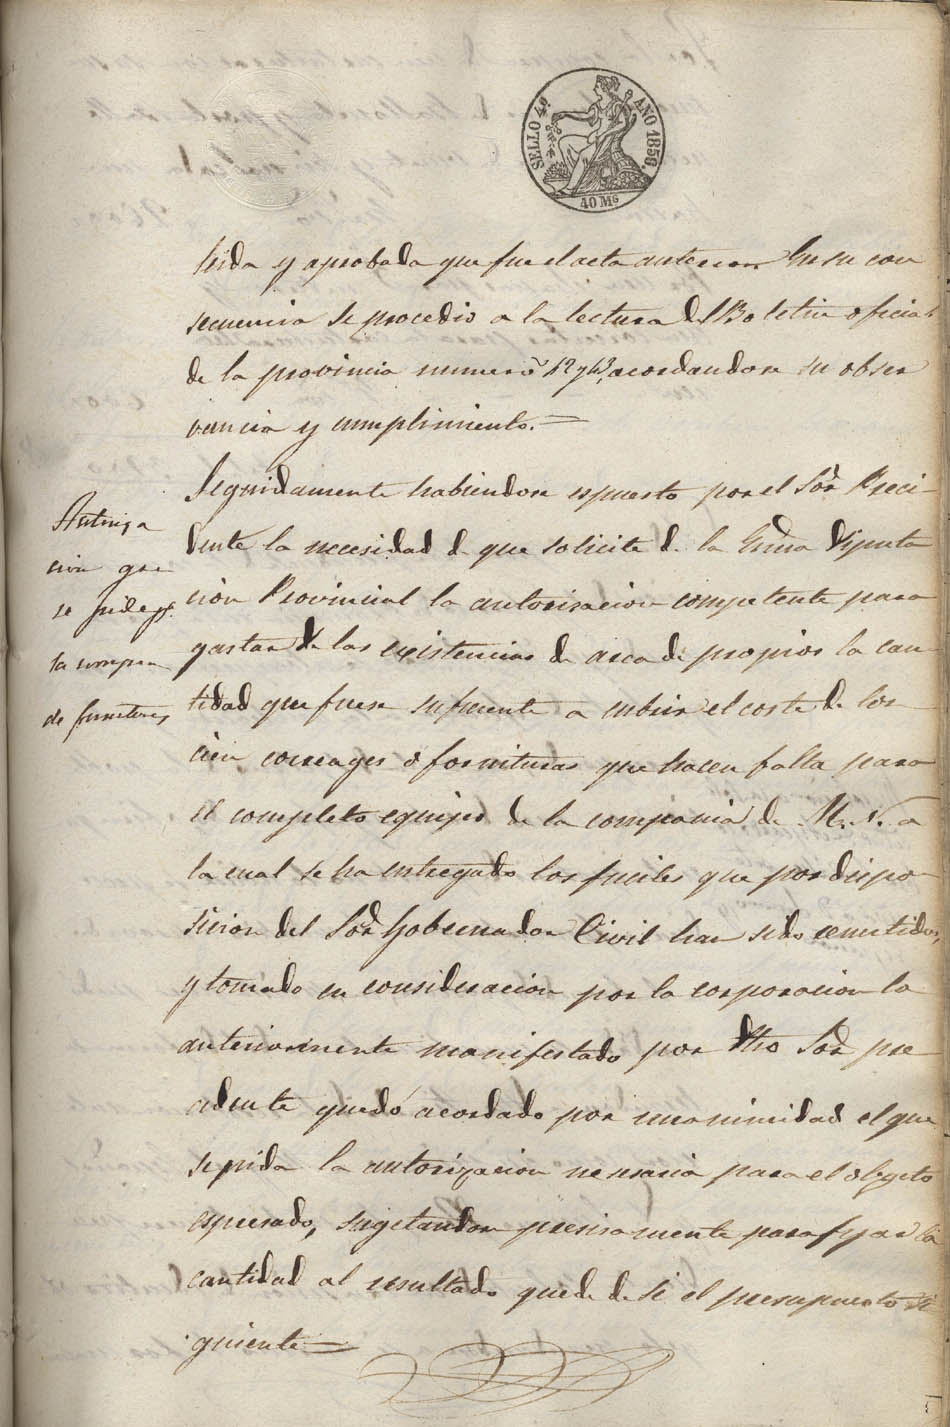 SELLO 4º AÑO 1856.
40 Ms
leida y aprobada que fue el acta anterior En su con
secuencia se procedió a la lectura del Boletin oficial
de la provincia numero 12 y 13, acordandose su obser
vancia y cumplimiento. =
Seguidamente habiendose espuesto por el Sor Preci-
dente la necesidad de que solicite de la Exma Diputa
cion Provincial la autorisacion competente para
gastar de las existencias de arca de propios la can-
tidad que fuere suficiente a cubrir el coste de los
cien correages o fornituras que hacen falta para
el completo equipo de la compania de M. N. a
la cual se ha entregado los fuciles que por dispo
sicion del Sor Gobernador Civil han sido remitidos,
y tomado en consideracion por la corporacion lo
anteriormente manifestado por dho Sor pre
cidente quedó acordado por unanimidad el que
se pida la autorizacion nesesaria para el obgeto
espresado, sugetandose presisamente para fijar la
cantidad al resultado que de de si el presupuesto si
guiente =
Autoriza
cion que
se pide pª
la compra
de fornituras